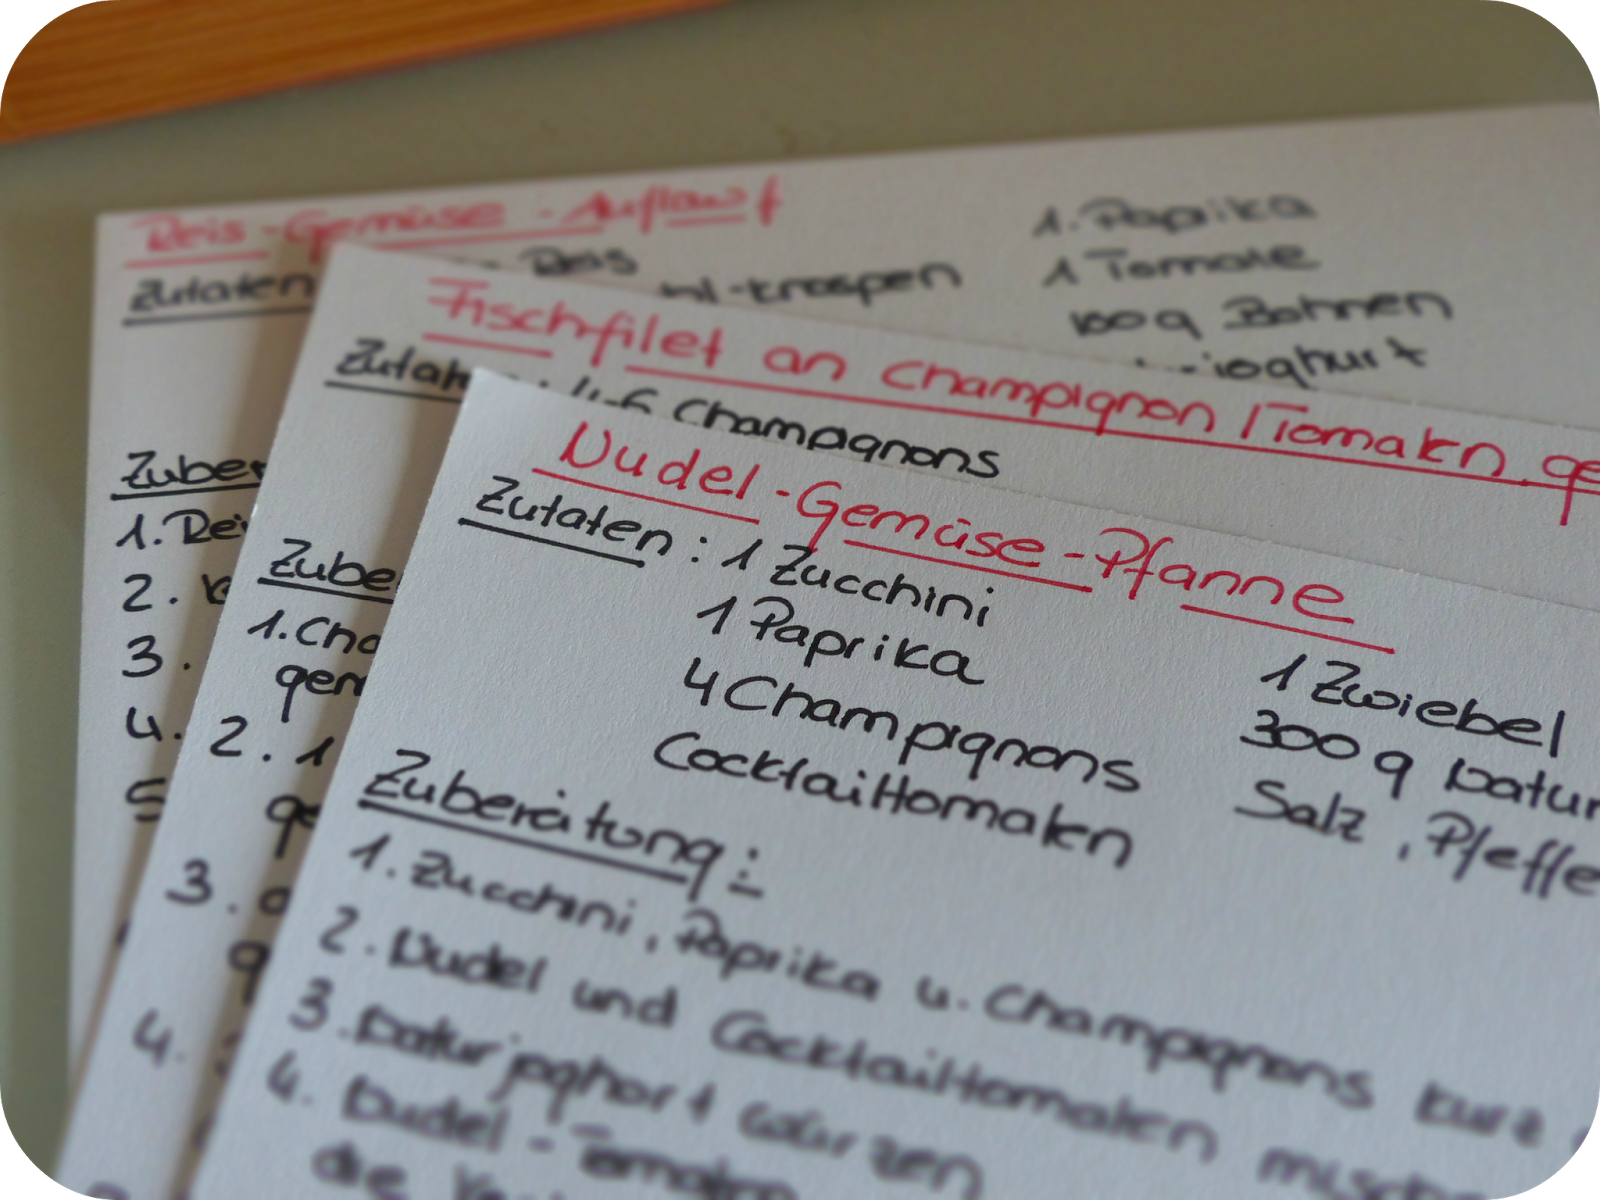 Reis-Gemüse-Auflauf
Zutaten
Reis
1 Paprika
1 Tomate
100g Bohnen
1. Rei
2.
3.
4.
5
Fischfilet an Champignon / Tomaten ge
4-6 Champagnons
1. Cha
gem
2. 1
ge
3.
4.
Nudel-Gemüse-Pfanne
Zutaten: 1 Zucchini
1 Paprika
4 Champignons
Cocktailtomaten
1 Zwiebel
300 g Natur
Salz, Pfeffe
Zubereitung:
1. Zucchini, Paprika u. Champignons kurz
2. Nudel und Cocktailtomaten misch
3. Naturjoghurt würzen
4. Nudel-Tomaten
die